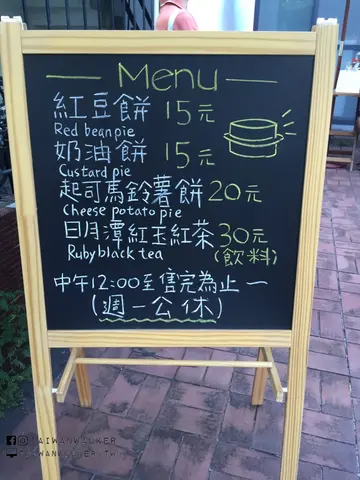 Menu
紅豆餅 15元
Red bean pie
奶油餅 15元
Custard pie
起司馬鈴薯餅 20元
Cheese potato pie
日月潭紅玉紅茶 30元
Ruby black tea (飲料)
中午12:00至售完為止
(週一公休)
TAIWANWALKER
TAIWANWALKER.TW